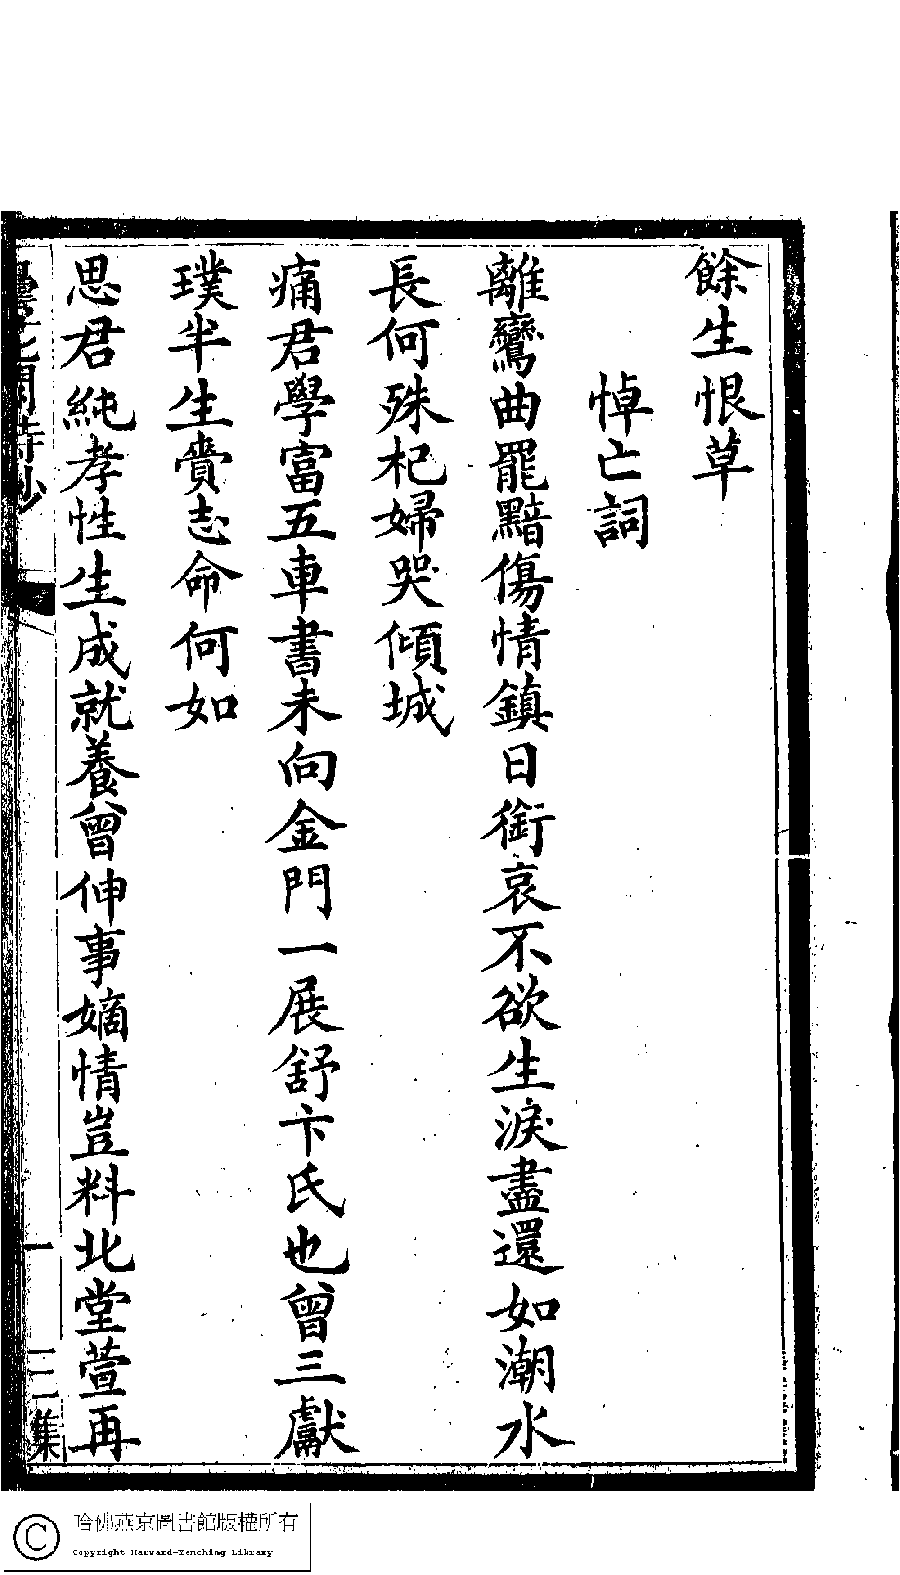 餘生恨草
悼亡詞
離鸞曲罷黯傷情鎮日銜哀不欲生淚盡還如潮水
長何殊杞婦哭傾城
痛君學富五車書未向金門一展舒卞氏也曾三獻
璞半生賫志命何如
思君純孝性生成就養曾伸事嫡情豈料北堂萱再
詩鈔
一
三集
哈佛燕京圖書館版權所有
Copyright Harvard-Yenching Library